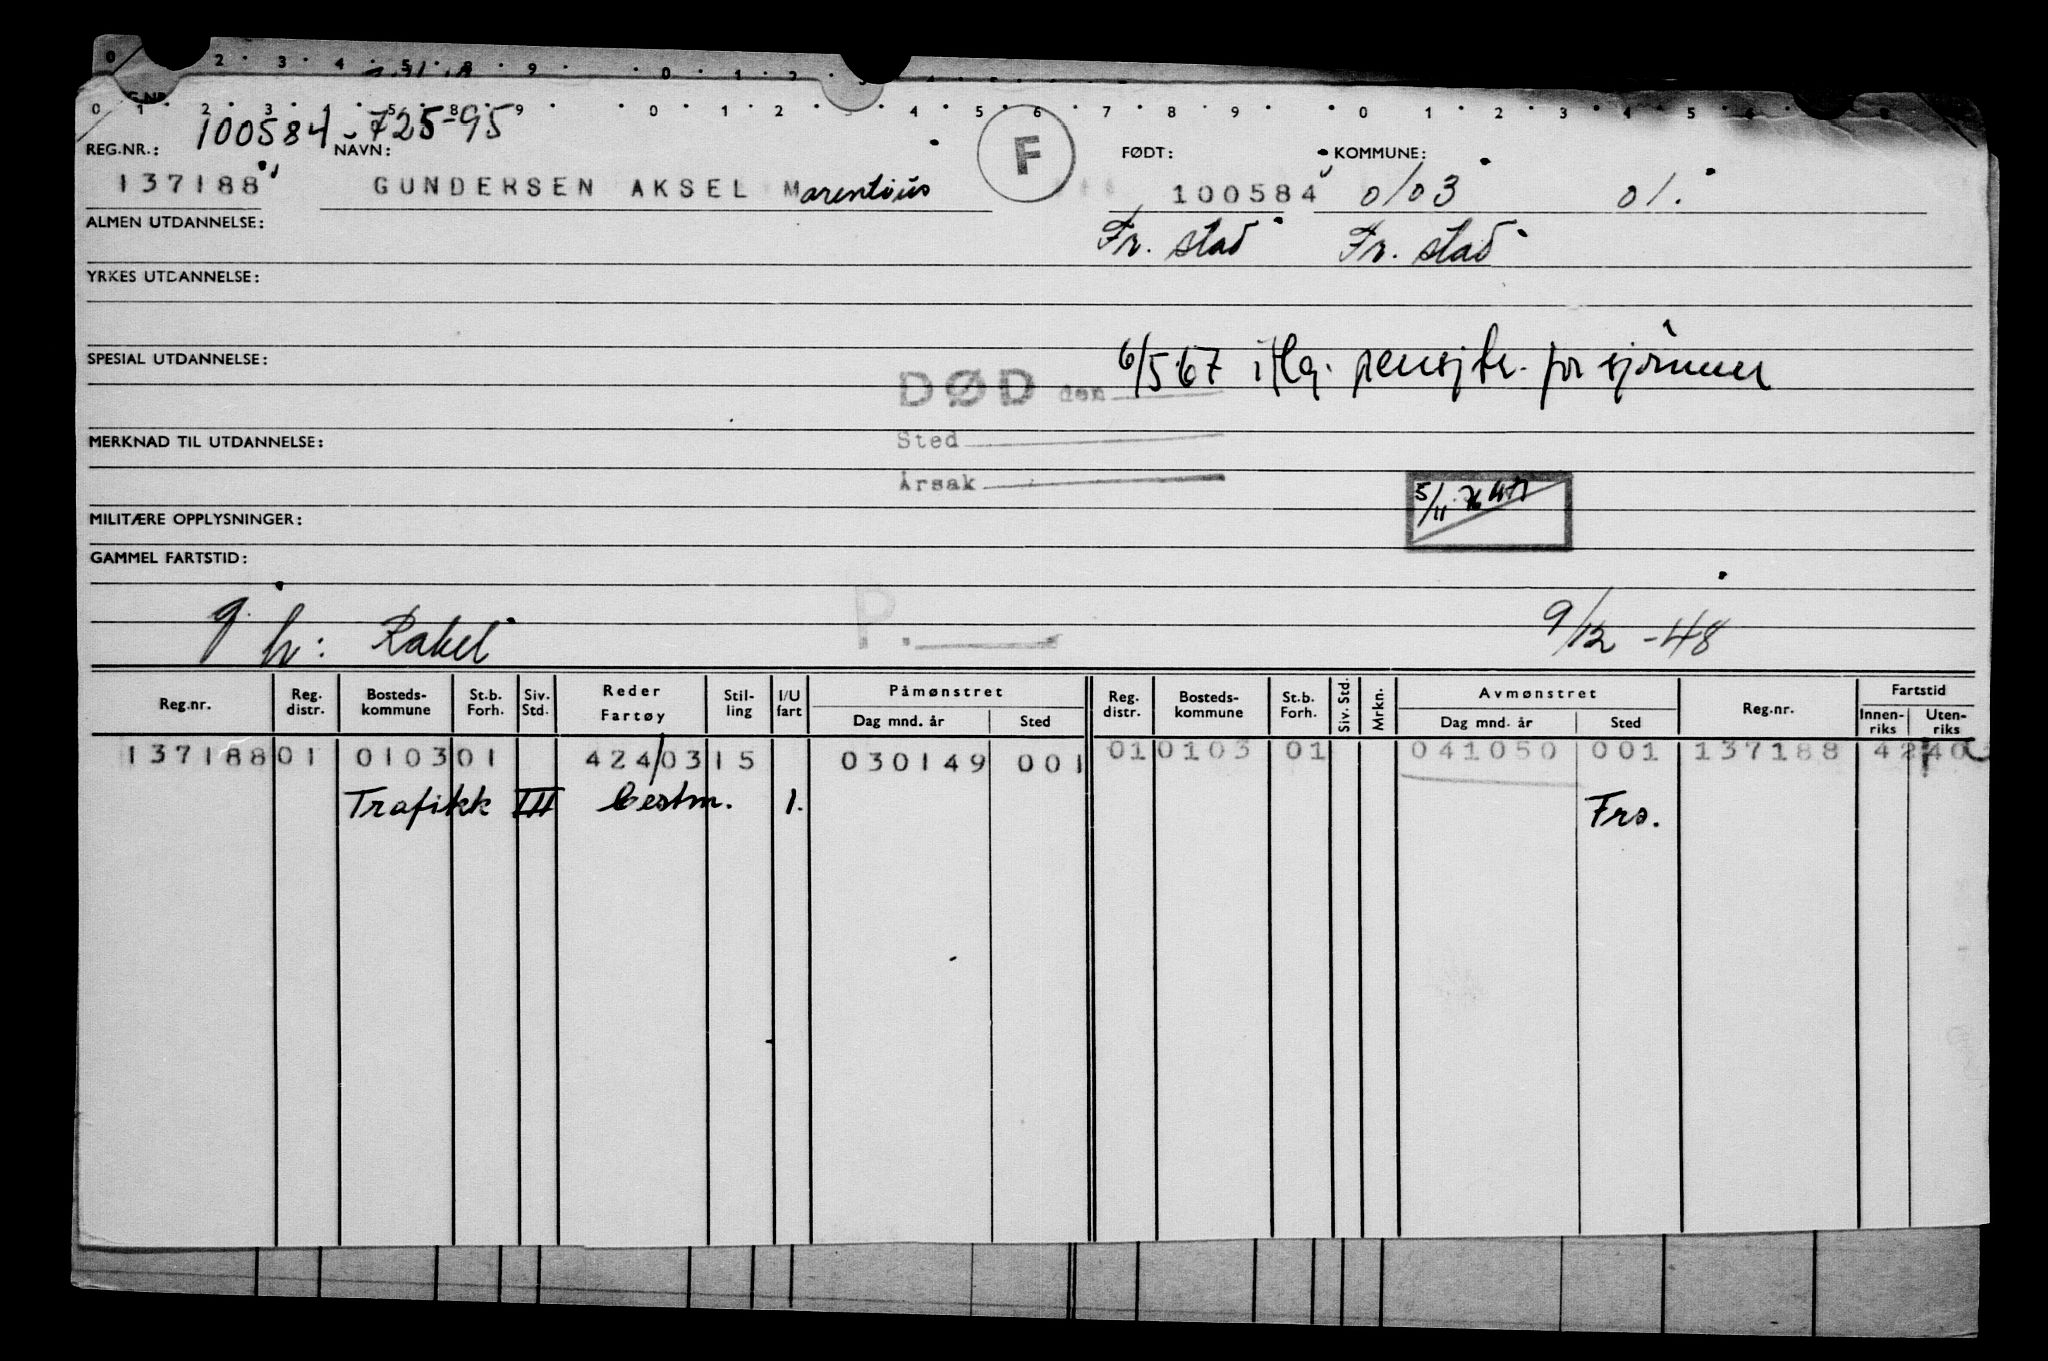 0 2 · 3 · 4 · 5 8 · 9 · · 0 · 1 · 2 · 3 4 5 6
0 1 · 2 · 3 · 4 5 8 · 9 · · 0 · 1 · 2 · 3 · 4 · 5 · 6 · 7 · 8 · 9 · · 0 · 1 · 2 · 3 · 4 · 5 · 6 · 8
100584-72595
REG.NR.: NAVN: F FØDT: KOMMUNE:
137188 GUNDERSEN AKSEL Marentius 100584 0103 01.
ALMEN UTDANNELSE: Fr. stad Fr. stad
YRKES UTDANNELSE:
SPESIAL UTDANNELSE:
DØD den 6/5 67 iflg. pensjtr. for sjømenn
MERKNAD TIL UTDANNELSE: Sted
Årsak
5/11 76
MILITÆRE OPPLYSNINGER:
GAMMEL FARTSTID:
g. h: Rakel P. 9/12-48
Reg.nr. Reg. distr. Bosteds-kommune St.b. Forh. Siv. Std. Reder Fartøy Stil-ling I/U fart Påmønstret Dag mnd. år Sted Reg. distr. Bosteds-kommune St.b. Forh. Siv. Std. Mrkn. Avmønstret Dag mnd. år Sted Reg.nr. Fartstid Innen-riks Uten-riks
137188 01 0103 01 424/03 15 030149 001 01 0103 01 041050 001 137188 42 40
Trafikk III Bestm. 1. Frs.